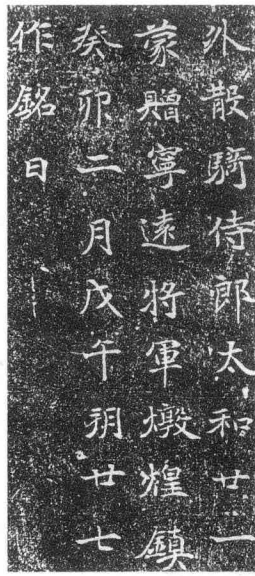 外散騎侍郎太和廿一
蒙贈寧遠將軍燉煌鎮
癸卯二月戊午朔廿七
作銘曰